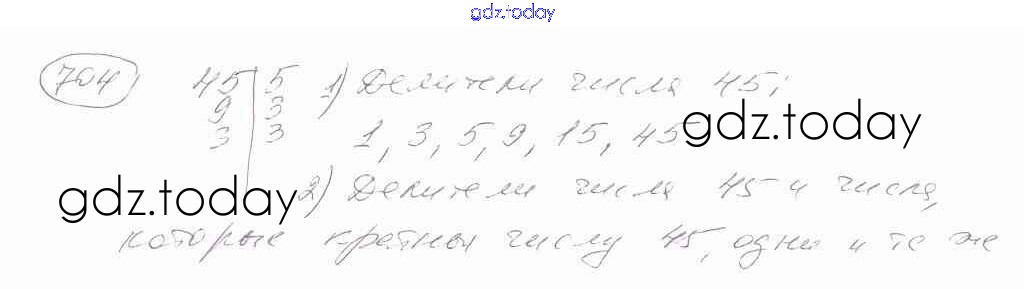 gdz.today
704, 45 | 5 1) Делители числа 45;
9 | 3
3 | 3 1, 3, 5, 9, 15, 45
gdz.today
gdz.today
2) Делители числа 45 и числа,
которые кратны числу 45, одни и те же